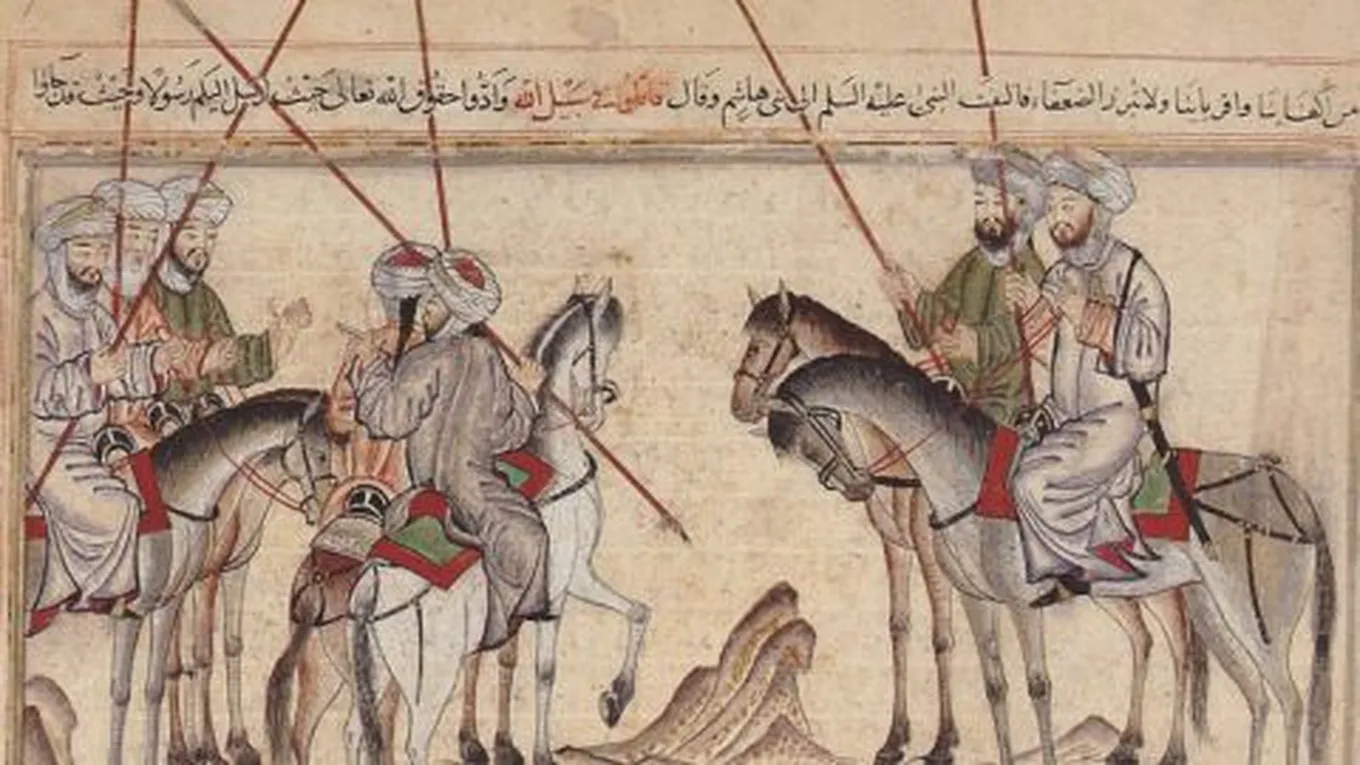 من اكفائنا واقربائنا ولا نبرز الضعفاء فالتفت النبي عليه السلم الى بنى هاشم وقال قاتلوا فى سبيل الله وادوا حقوق الله تعالى جئت اليكم رسولا